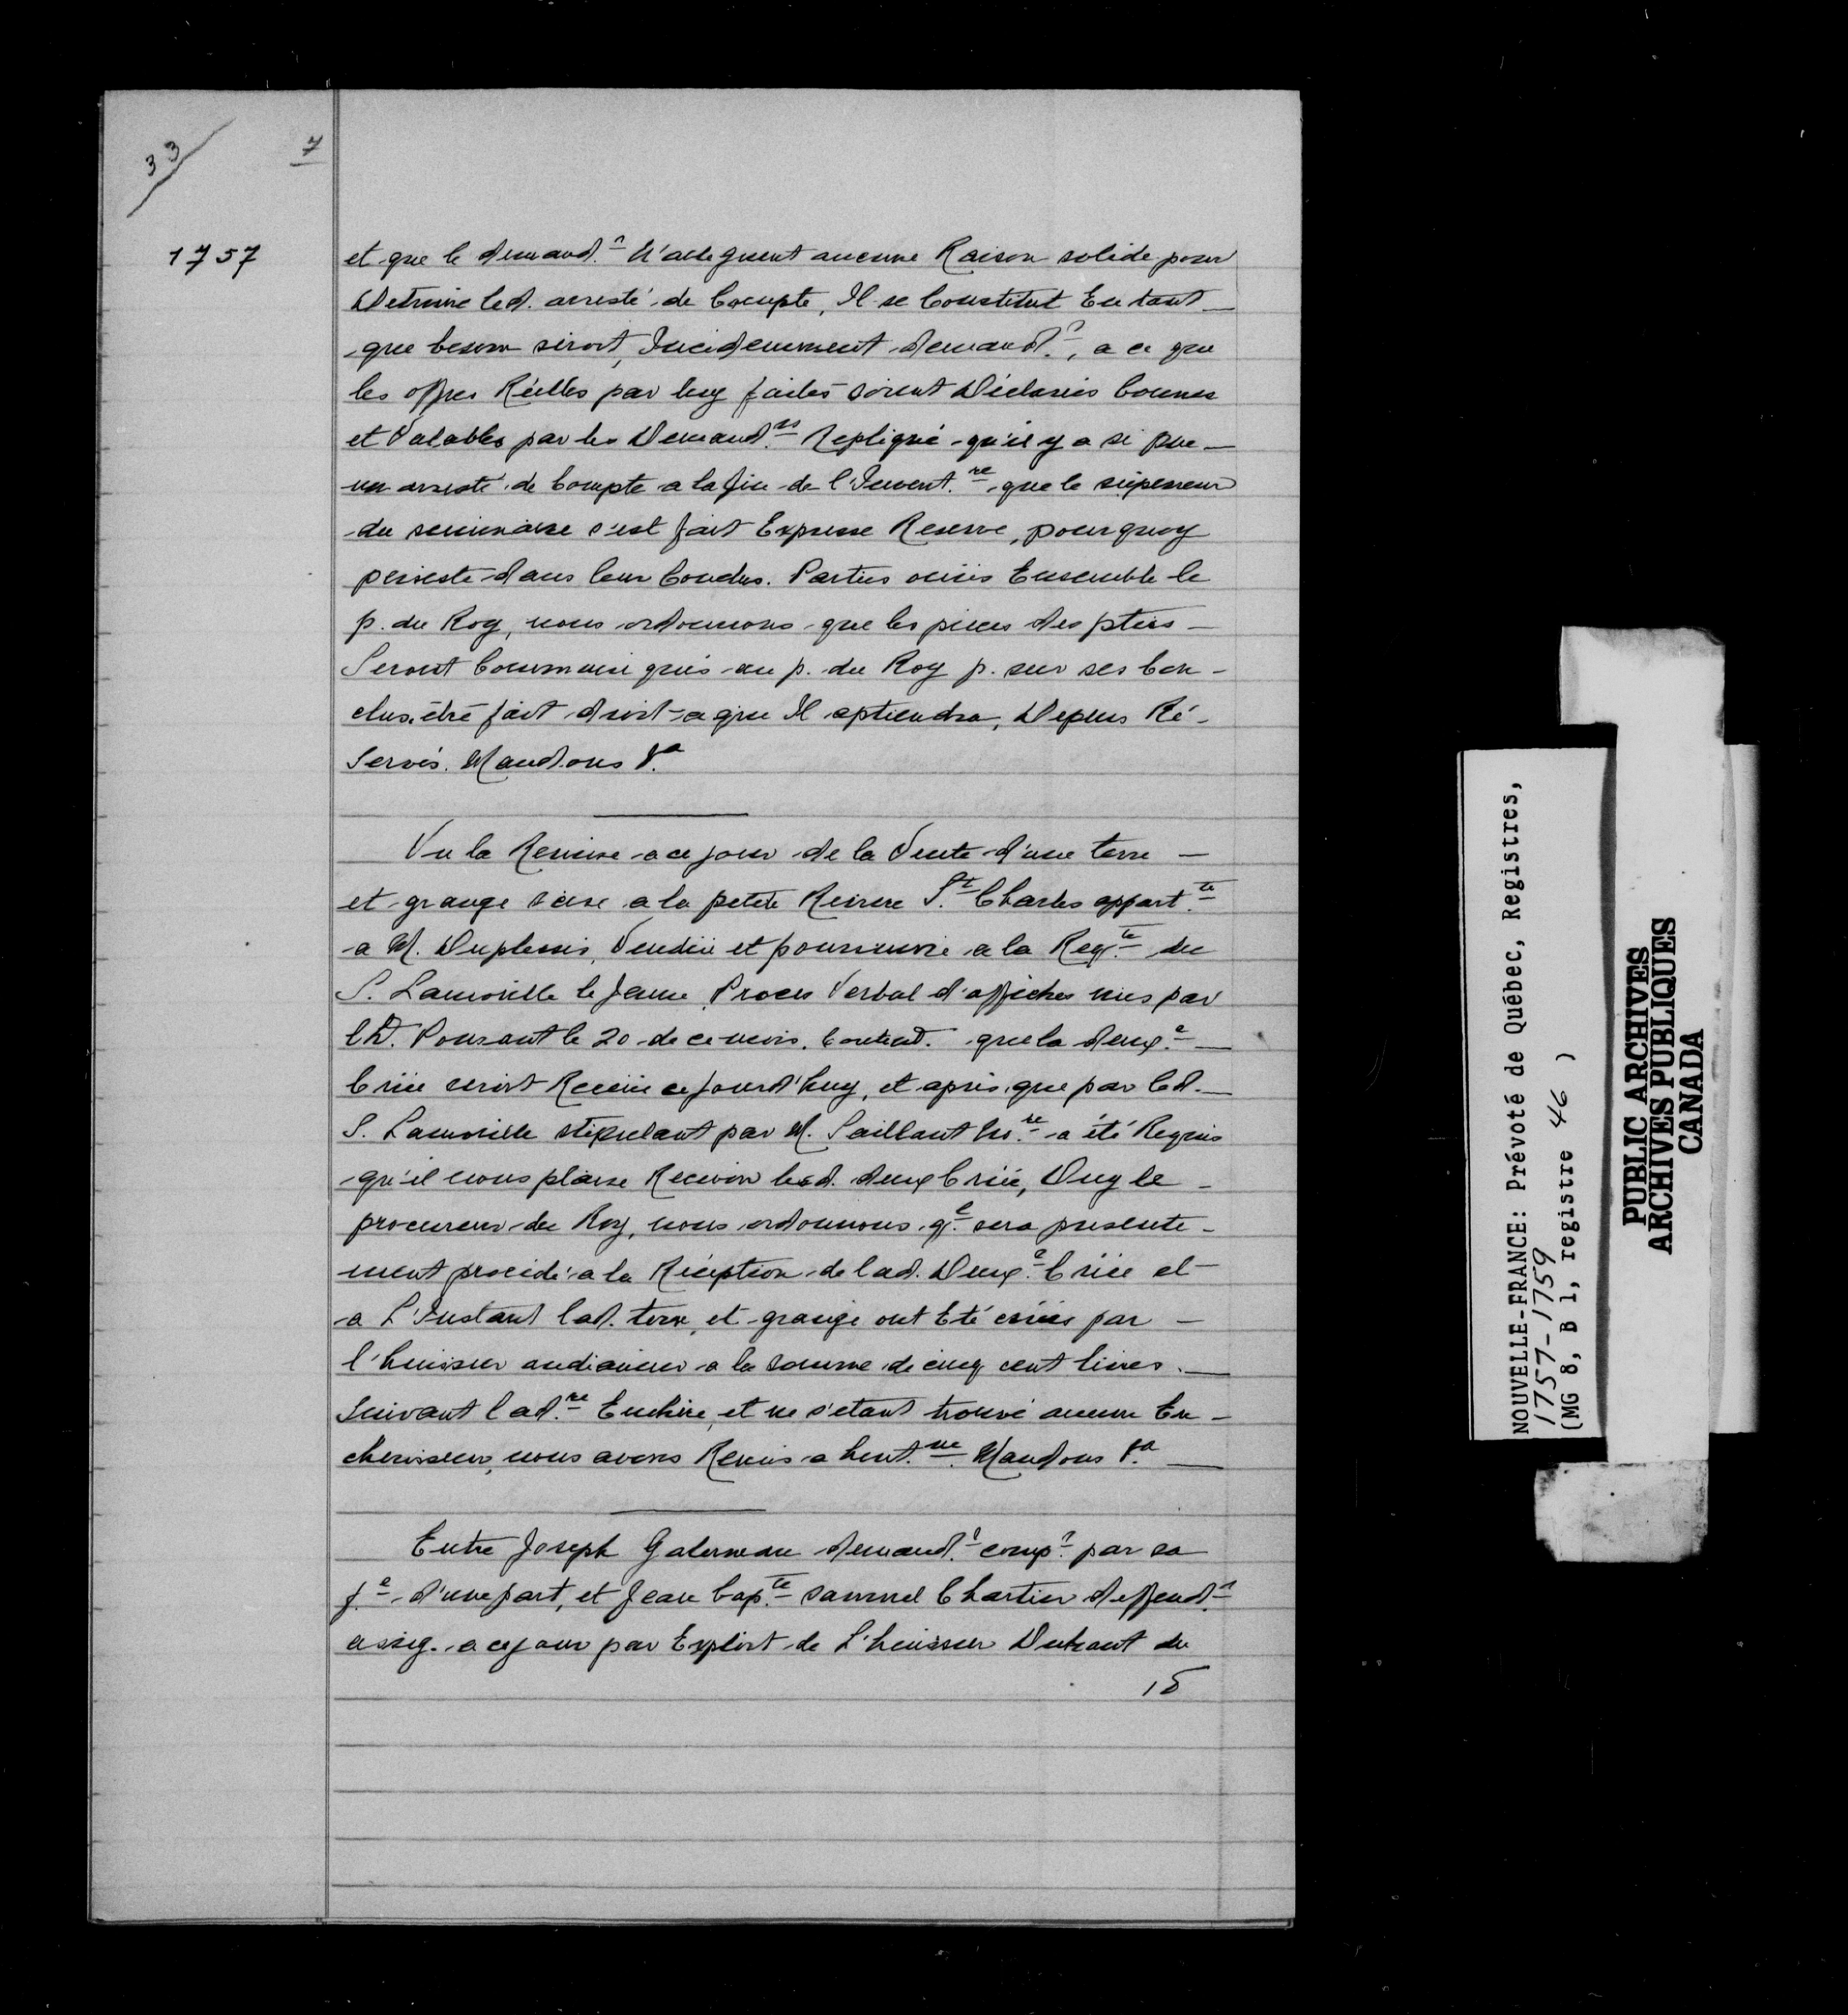 33
7
1757
et que le demand.r N'alleguent aucune Raison solide pour
Detruire led. arresté de Compte, Il se Constitut En tant
que besoin seroit, Incidemment demand.r, a ce que
les offres Réelles par luy faites soient Déclarées bonnes
et Valables par les Demand.rs Repliqué qu'il y a si peu
un arresté de Compte a la fin de l'Invent.re que le superieur
du seminaire s'est fait Expresse Reserve, pourquoy
persiste dans leur Conclus. Parties ouies Ensemble le
p. du Roy, nous ordonnons que les pieces des pties
Seront Communiquées au p. du Roy p. sur ses Con-
clus. être fait droit a que Il aptiendra, Depens Ré-
servés. Mandons &a
Vu la Remise a ce jour de la Vente d'une terre
et grange sise a la petite Reiviere S.t Charles appart.te
a M. Duplessis, Vendüe et poursuivie a la Req.te du
S. Lanouille le Jeune, Proces Verbal d'affiches mis par
lD. Poursant le 20 de ce mois. Content. que la deux.e
Criée seroit Receüe cejourd'huy, et après que par led.
S. Lanouille stipulant par M. Saillant No.re a été Requis
qu'il nous plaise Recevoir lad. deux Criée, Ouy le
procureur du Roy, nous ordonnons q.e sera presente-
ment procédé a la Réception de lad. Deux.e Criée et
a L'Instant lad. terre, et grange ont Eté criées par
l'huissier audiancier a la somme de cinq cent livres
suivant lad.re Enchère, et ne s'etant trouvé aucun En-
cherisseur, nous avons Remis a huit.ne. Mandons &a
Entre Joseph Galerneau demand.r comp.t par sa
f.e d'une part, et Jean bap.te samuel Chartier deffend.r
assig. a ce jour par Exploit de L'huissier Dukaut du
15
NOUVELLE-FRANCE: Prévoté de Québec, Registres,
1757-1759
(MG 8, B 1, registre 46 )
PUBLIC ARCHIVES
ARCHIVES PUBLIQUES
CANADA